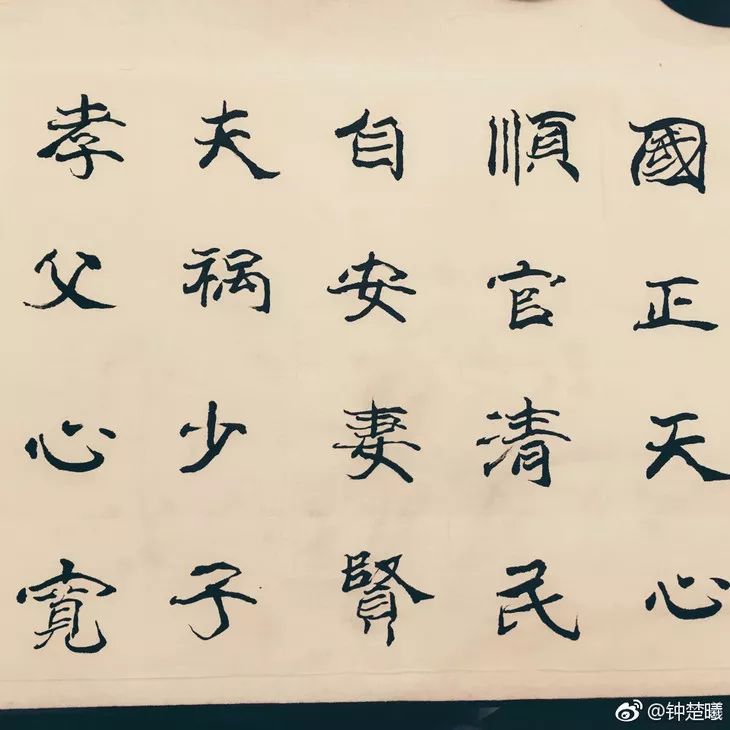 國正天心
順官清民
自安妻賢
夫祸少子
孝父心寬
@钟楚曦